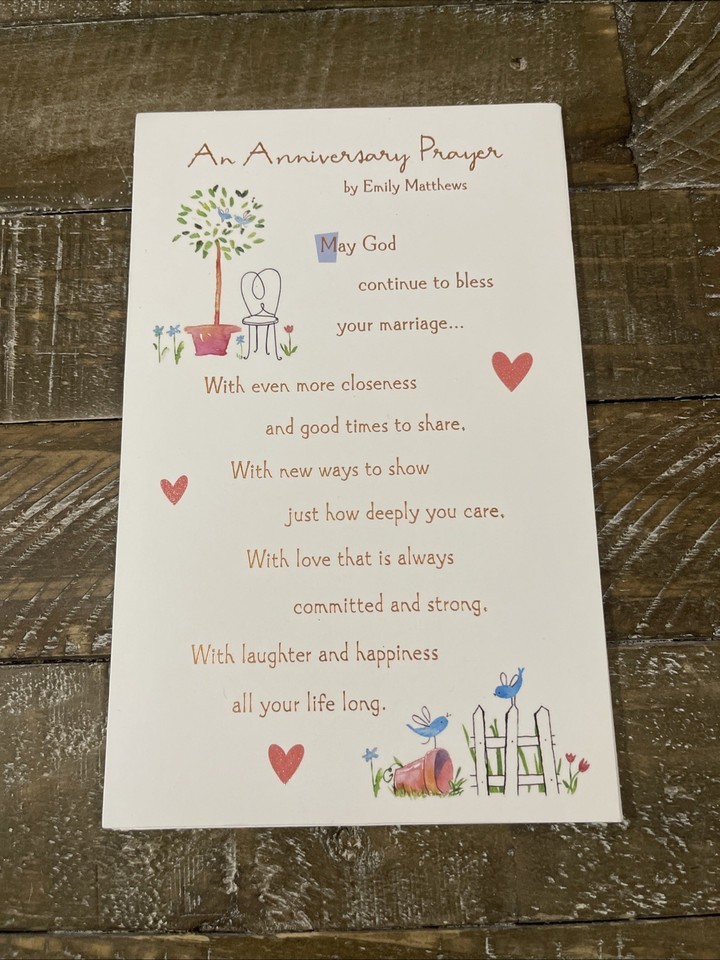 An Anniversary Prayer
by Emily Matthews
May God
continue to bless
your marriage...
With even more closeness
and good times to share,
With new ways to show
just how deeply you care,
With love that is always
committed and strong,
With laughter and happiness
all your life long.